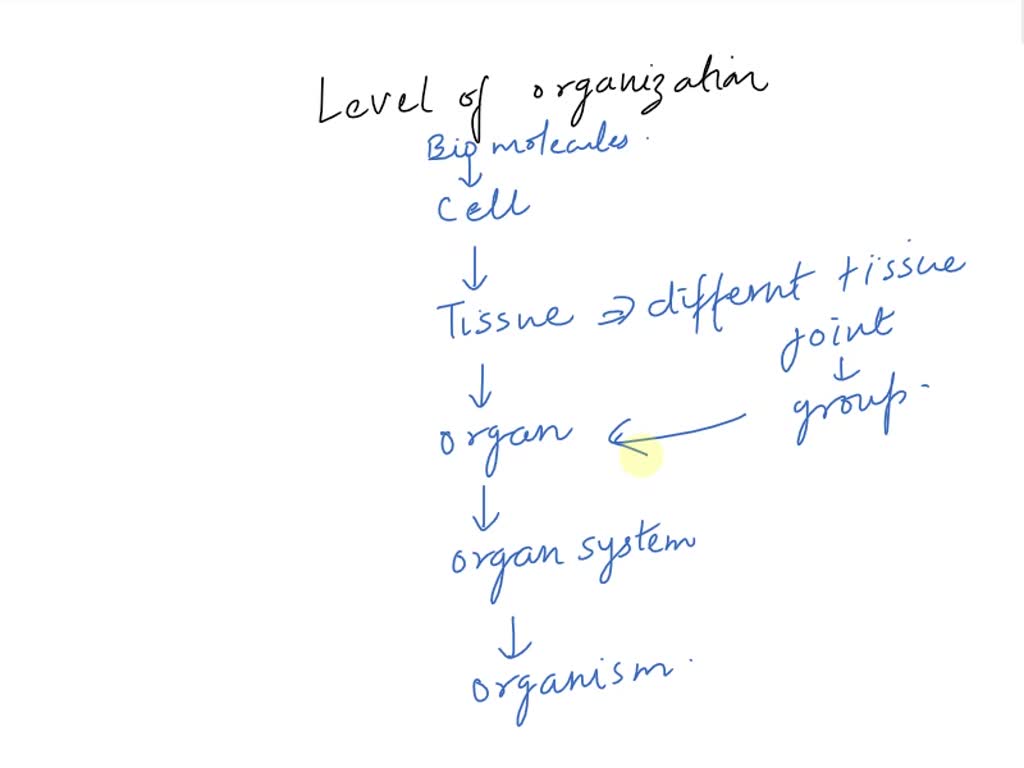 Level of organization
Bio molecules.
↓
Cell
↓
Tissue ⇒ differnt tissue
joint
↓
group.
↓
organ ←
↓
organ system
↓
organism.